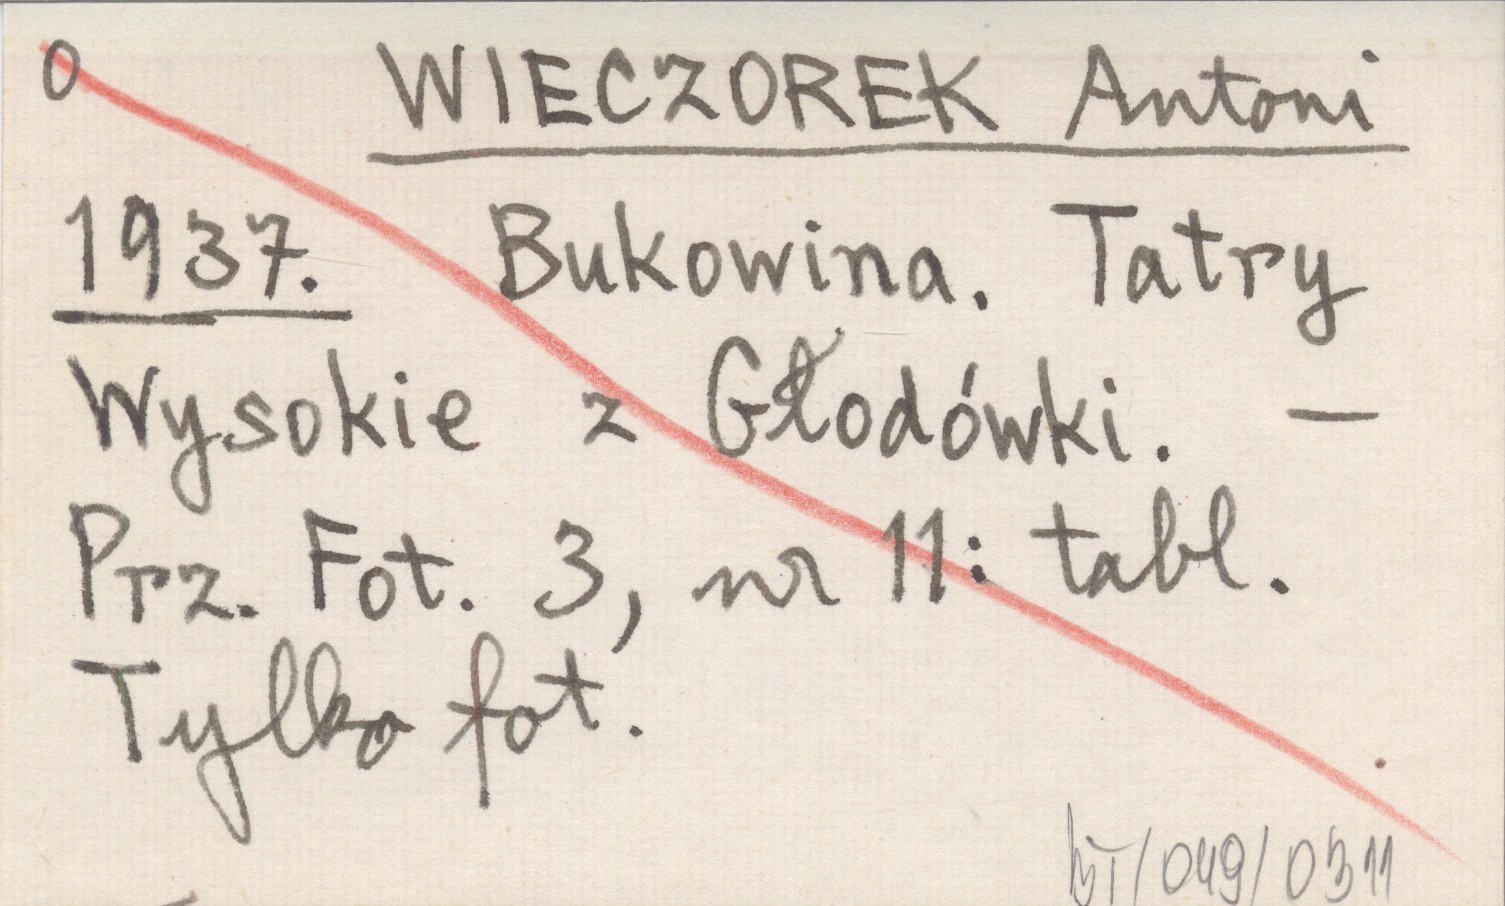 0 WIECZOREK Antoni
1937. Bukowina. Tatry
Wysokie z Głodówki. —
Prz. Fot. 3, nr 11: tabl.
Tylko fot.
BT/049/0311